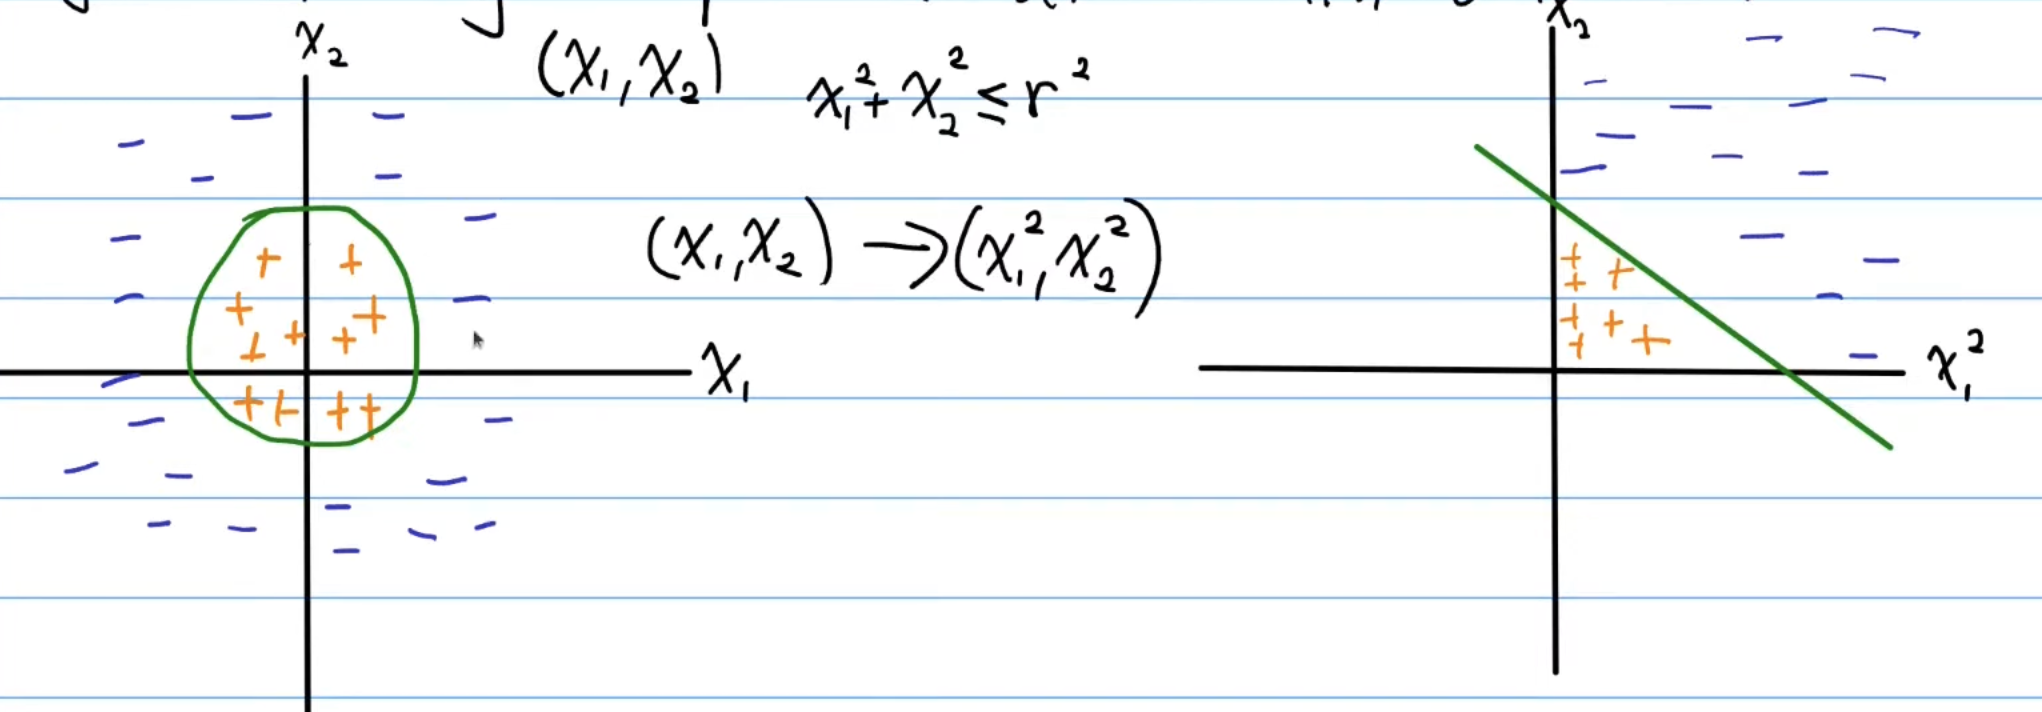 x₂
(x₁, x₂) x₁² + x₂² ≤ r²
x₂
(x₁, x₂) → (x₁², x₂²)
x₁
x₁²